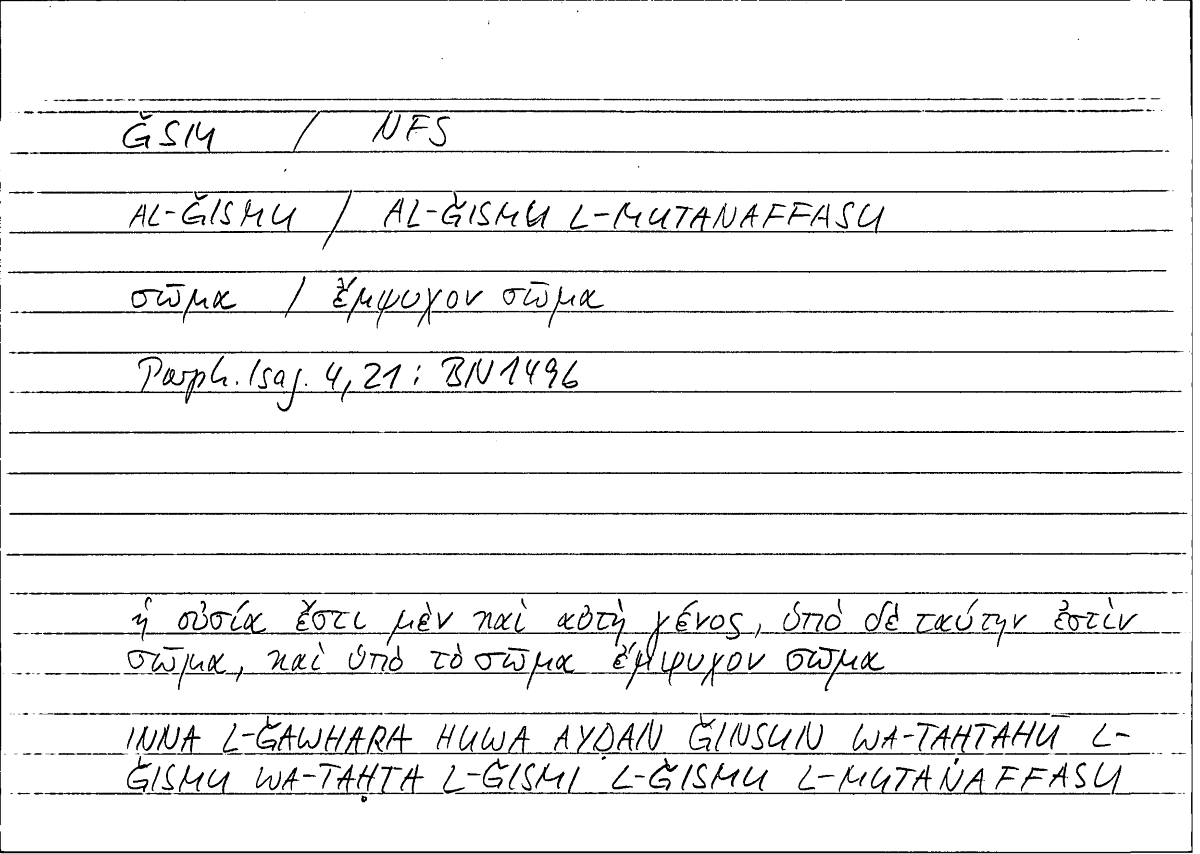 ǦSM / NFS
AL-ǦISMU / AL-ǦISMU L-MUTANAFFASU
σῶμα / ἔμψυχον σῶμα
Porph. Isag. 4,21; BN 149b
ἡ οὐσία ἔστι μὲν καὶ αὐτὴ γένος, ὑπὸ δὲ ταύτην ἐστὶν
σῶμα, καὶ ὑπὸ τὸ σῶμα ἔμψυχον σῶμα
INNA L-ǦAWHARA HUWA AYḌAN ǦINSUN WA-TAḤTAHŪ L-
ǦISMU WA-TAḤTA L-ǦISMI L-ǦISMU L-MUTANAFFASU